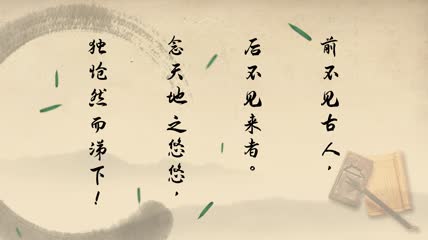 前不见古人，
后不见来者。
念天地之悠悠，
独怆然而涕下！